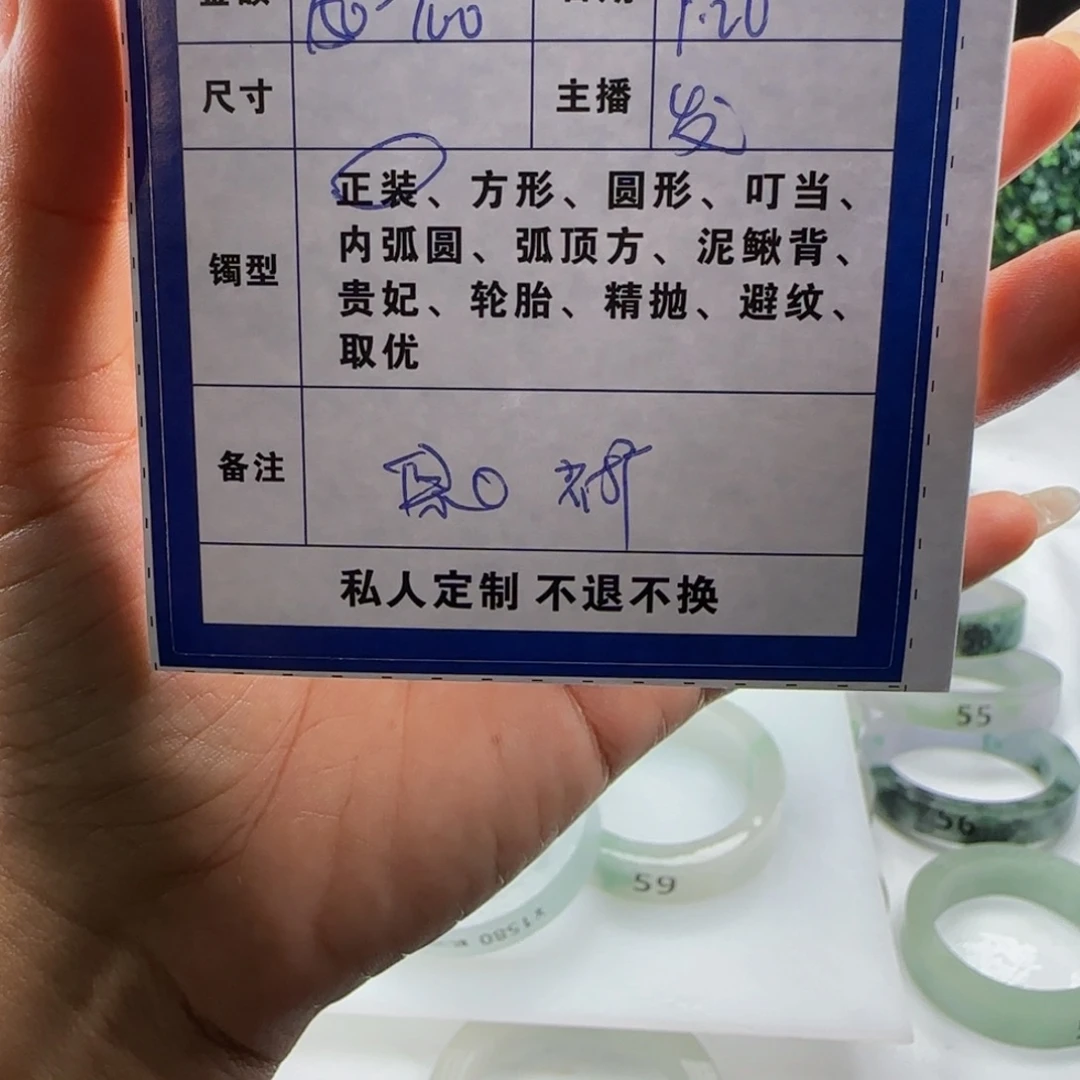 金额 100 日期 1.20
尺寸 主播 发
镯型 正装、方形、圆形、叮当、
内弧圆、弧顶方、泥鳅背、
贵妃、轮胎、精抛、避纹、
取优
备注
私人定制 不退不换
55
56
59
¥1580